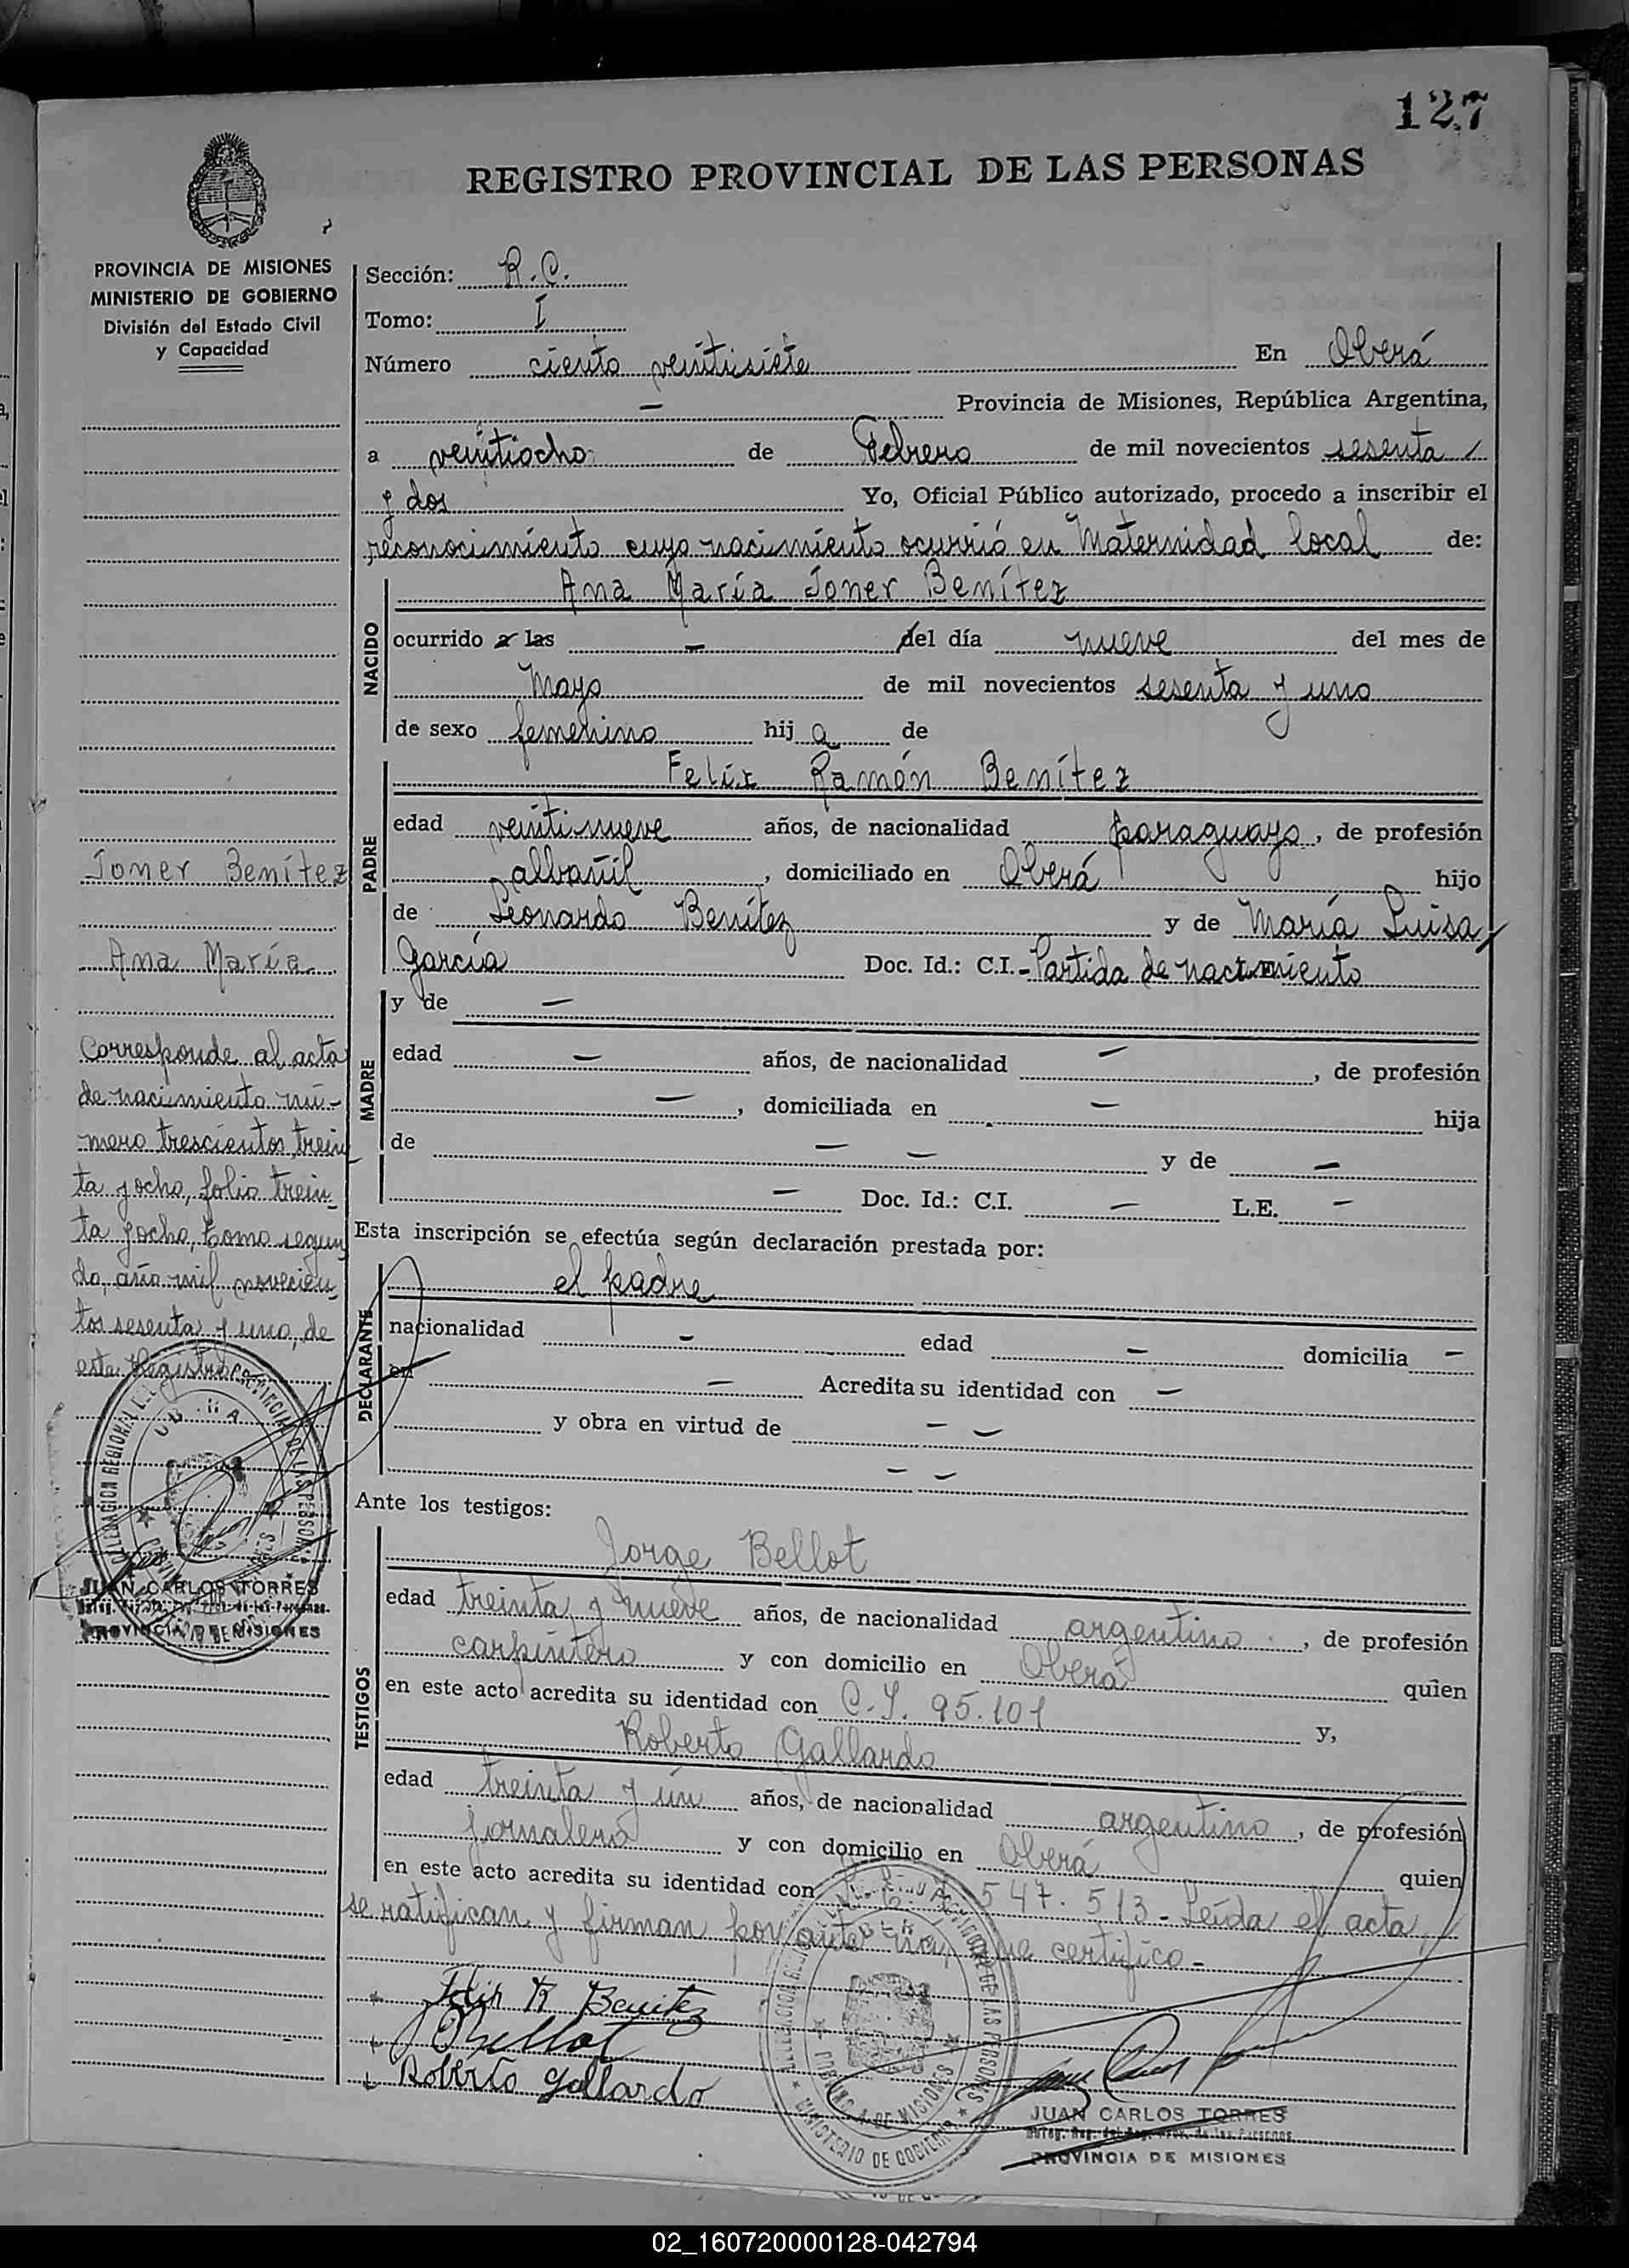 127
REGISTRO PROVINCIAL DE LAS PERSONAS
PROVINCIA DE MISIONES
MINISTERIO DE GOBIERNO
División del Estado Civil
y Capacidad
Joner Benítez
Ana María
Corresponde al acta
de nacimiento nú-
mero trescientos trein
ta y ocho, folio trein-
ta y ocho, tomo segun
do, año mil novecien-
tos sesenta y uno, de
este Registro
JUAN CARLOS TORRES
PROVINCIA DE MISIONES
Sección: R.C.
Tomo: I
Número ciento veintisiete En Oberá
— Provincia de Misiones, República Argentina,
a veintiocho de Febrero de mil novecientos sesenta
y dos Yo, Oficial Público autorizado, procedo a inscribir el
reconocimiento cuyo nacimiento ocurrió en Maternidad local de:
NACIDO
Ana María Joner Benítez
ocurrido a las — del día nueve del mes de
Mayo de mil novecientos sesenta y uno
de sexo femenino hij a de
PADRE
Felix Ramón Benítez
edad veintinueve años, de nacionalidad paraguayo, de profesión
albañil, domiciliado en Oberá hijo
de Leonardo Benítez y de María Luisa
García Doc. Id.: C.I.- Partida de nacimiento
MADRE
y de —
edad — años, de nacionalidad —, de profesión
—, domiciliada en — hija
de — — y de —
— Doc. Id.: C.I. — L.E. —
Esta inscripción se efectúa según declaración prestada por:
DECLARANTE
el padre
nacionalidad — edad — domicilia —
en — Acredita su identidad con —
y obra en virtud de — —
— —
Ante los testigos:
TESTIGOS
Jorge Bellot
edad treinta y nueve años, de nacionalidad argentino, de profesión
carpintero y con domicilio en Oberá quien
en este acto acredita su identidad con C.I. 95.101 y,
Roberto Gallardo
edad treinta y un años, de nacionalidad argentino, de profesión
jornalero y con domicilio en Oberá quien
en este acto acredita su identidad con 547.513 - Leída el acta,
se ratifican y firman por ante mí, que certifico -
Felix R Benitez
Bellot
Roberto Gallardo
MINISTERIO DE GOBIERNO
JUAN CARLOS TORRES
PROVINCIA DE MISIONES
02_160720000128-042794